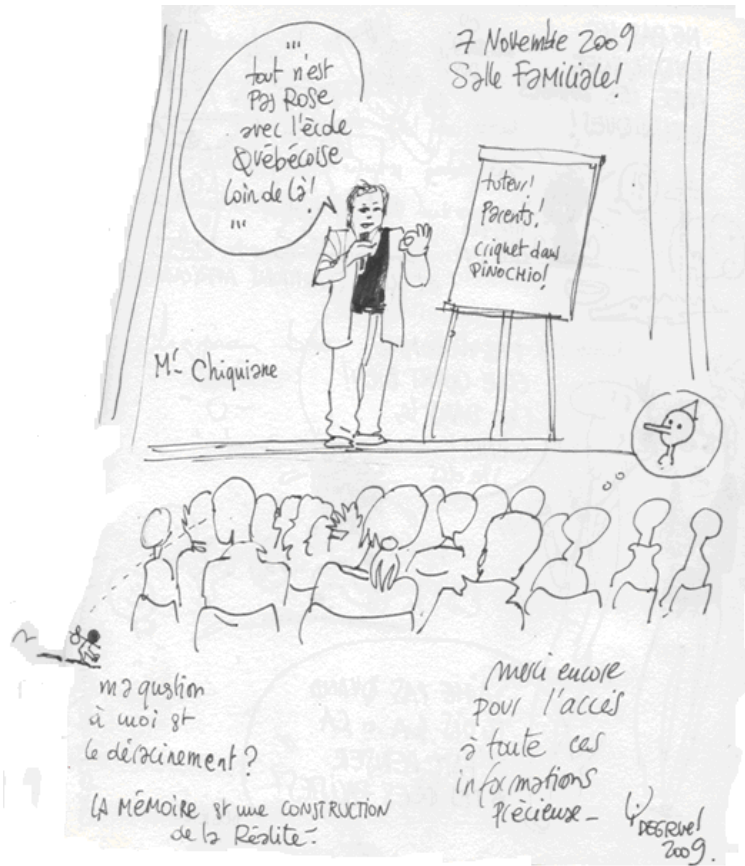 7 Novembre 2009
Salle Familiale!
...
tout n'est
Pas Rose
avec l'école
Québécoise
Loin de Là!
...
tuteur!
Parents!
criquet dans
PINOCHIO!
Mr Chiquiane
ma qustion
à moi st
le déracinement?
LA MÉMOIRE st une CONSTRUCTION
de la Réalité-
merci encore
pour l'accès
à toute ces
informations
Précieuse-
2009.